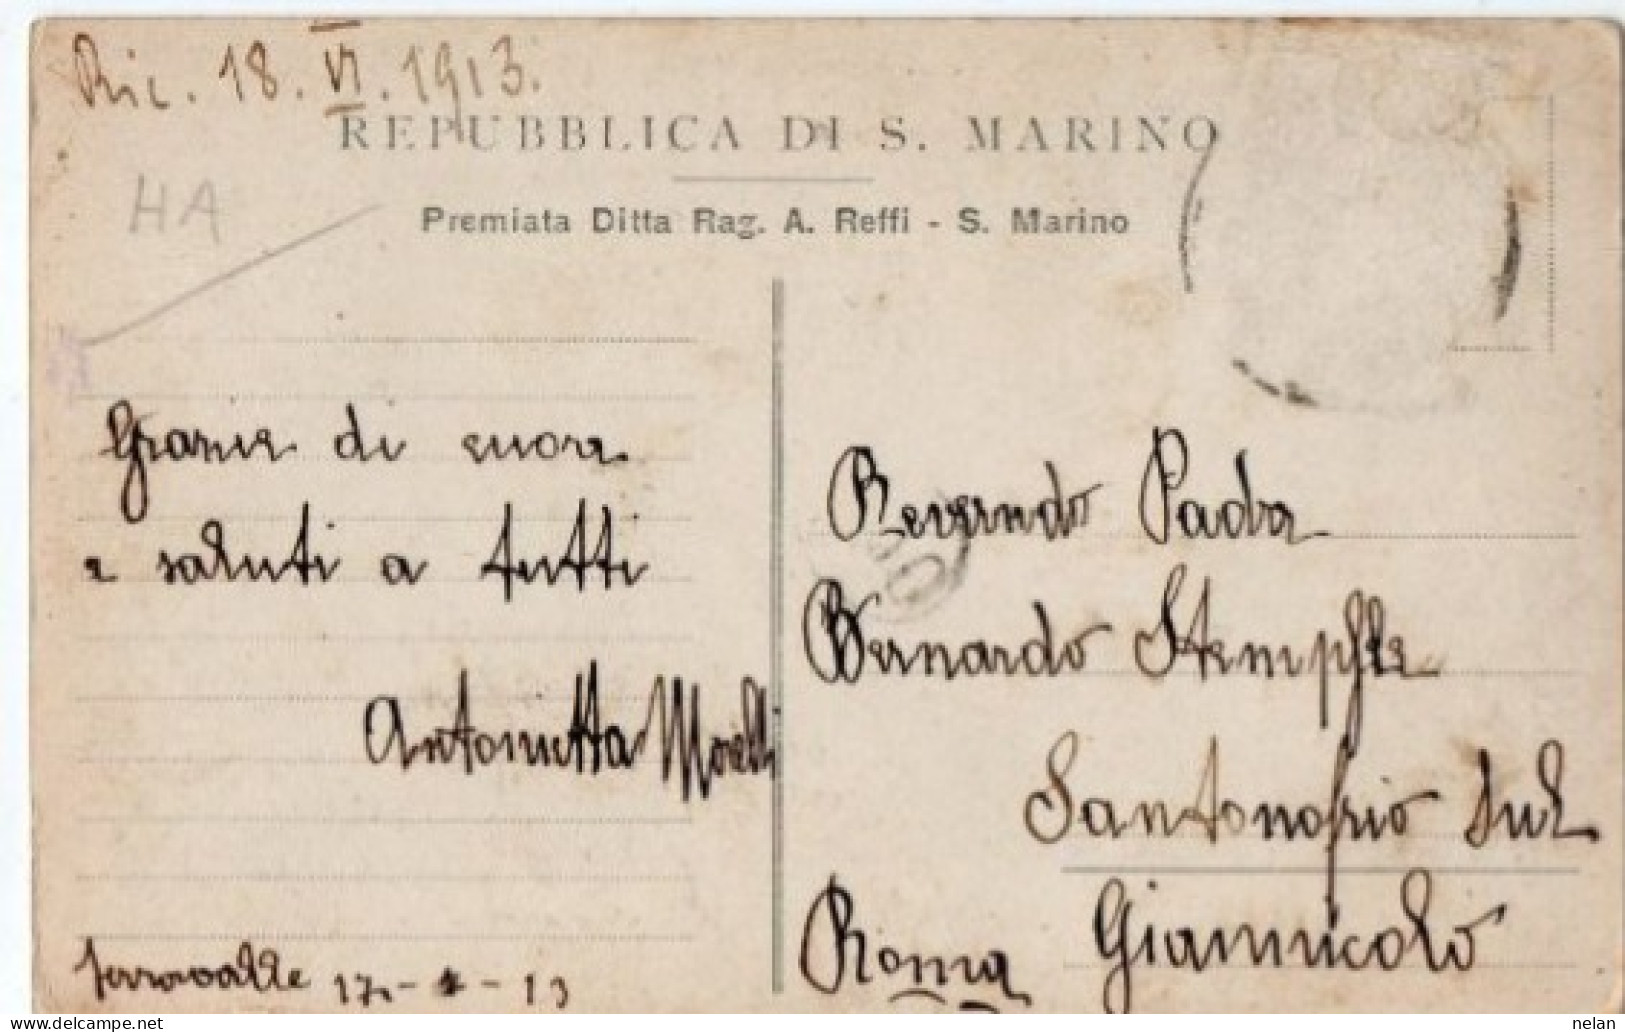 Ric. 18. VI. 1913.
REPUBBLICA DI S. MARINO
HA
Premiata Ditta Rag. A. Reffi - S. Marino
Grazie di cuore
e saluti a tutti
Antonietta Morelli
Serravalle 17 - - 13
Reverendo Padre
Bernardo Stempfle
Santonofrio sul
Giannicolo
Roma
delcampe.net
nelan